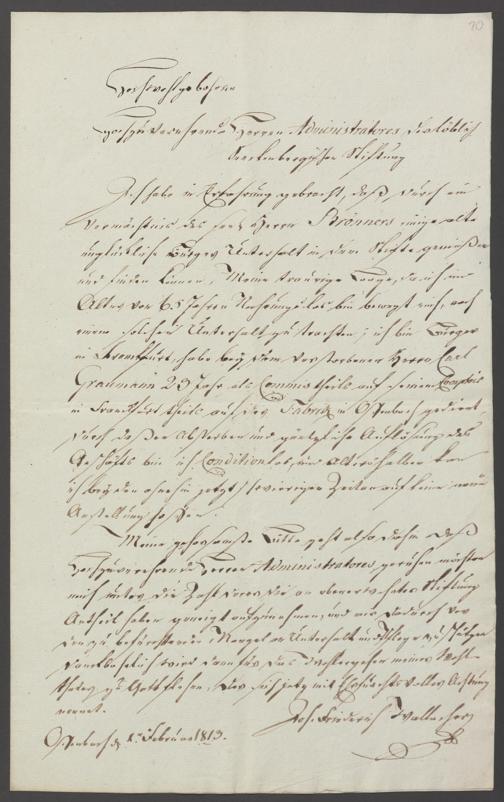 70
Hochwohlgebohrne
Hochzuverehrende Herren Administratores der löblich
Senckenbergischen Stiftung
Ich habe in Erfahrung gebracht, daß durch ein
Vermächtnis des seel. Herrn Brönners einige alte
unglückliche Bürger Unterhalt in dem Stifte genießen
und finden können, Meine traurige Lage, da ich im
Alter von 65 Jahren Nahrungslos bin bewegt mich, nach
einem solchen Unterhalt zu trachten; ich bin Bürger
in Franckfurt, habe bey dem verstorbenen Herrn Carl
Graumann 23 Jahr als Commis theils auf seinem Comptoir
in Franckfurt theils auf der Fabrick in Offenbach gedient,
durch dessen Absterben und gänzliche Auflösung des
Geschäfts bin ich Conditionslos, und Altershalber kan
ich bey den ohnehin jetzt schwierigen Zeiten auf keine neue
Anstellung hoffen.
Meine gehorsamste Bitte geht also dahin daß
Hochzuverehrende Herren Administratores geruhen möchten
mich unter die Zahl derer die an obenerwehnter Stiftung
Antheil haben geneigt aufzunehmen, und mich dadurch vor
den zu befürchtenden Mangel an Unterhalt und Pflege zu schützen
Dankbarlich wird dafür das Wohlergehen meiner Wohl-
thäter zu Gott flehen, der sich jetzt mit Ehrfurchtsvoller Achtung
nennet.
Joh. Friederich Wallacher
Offenbach d. 1. Februar 1813.